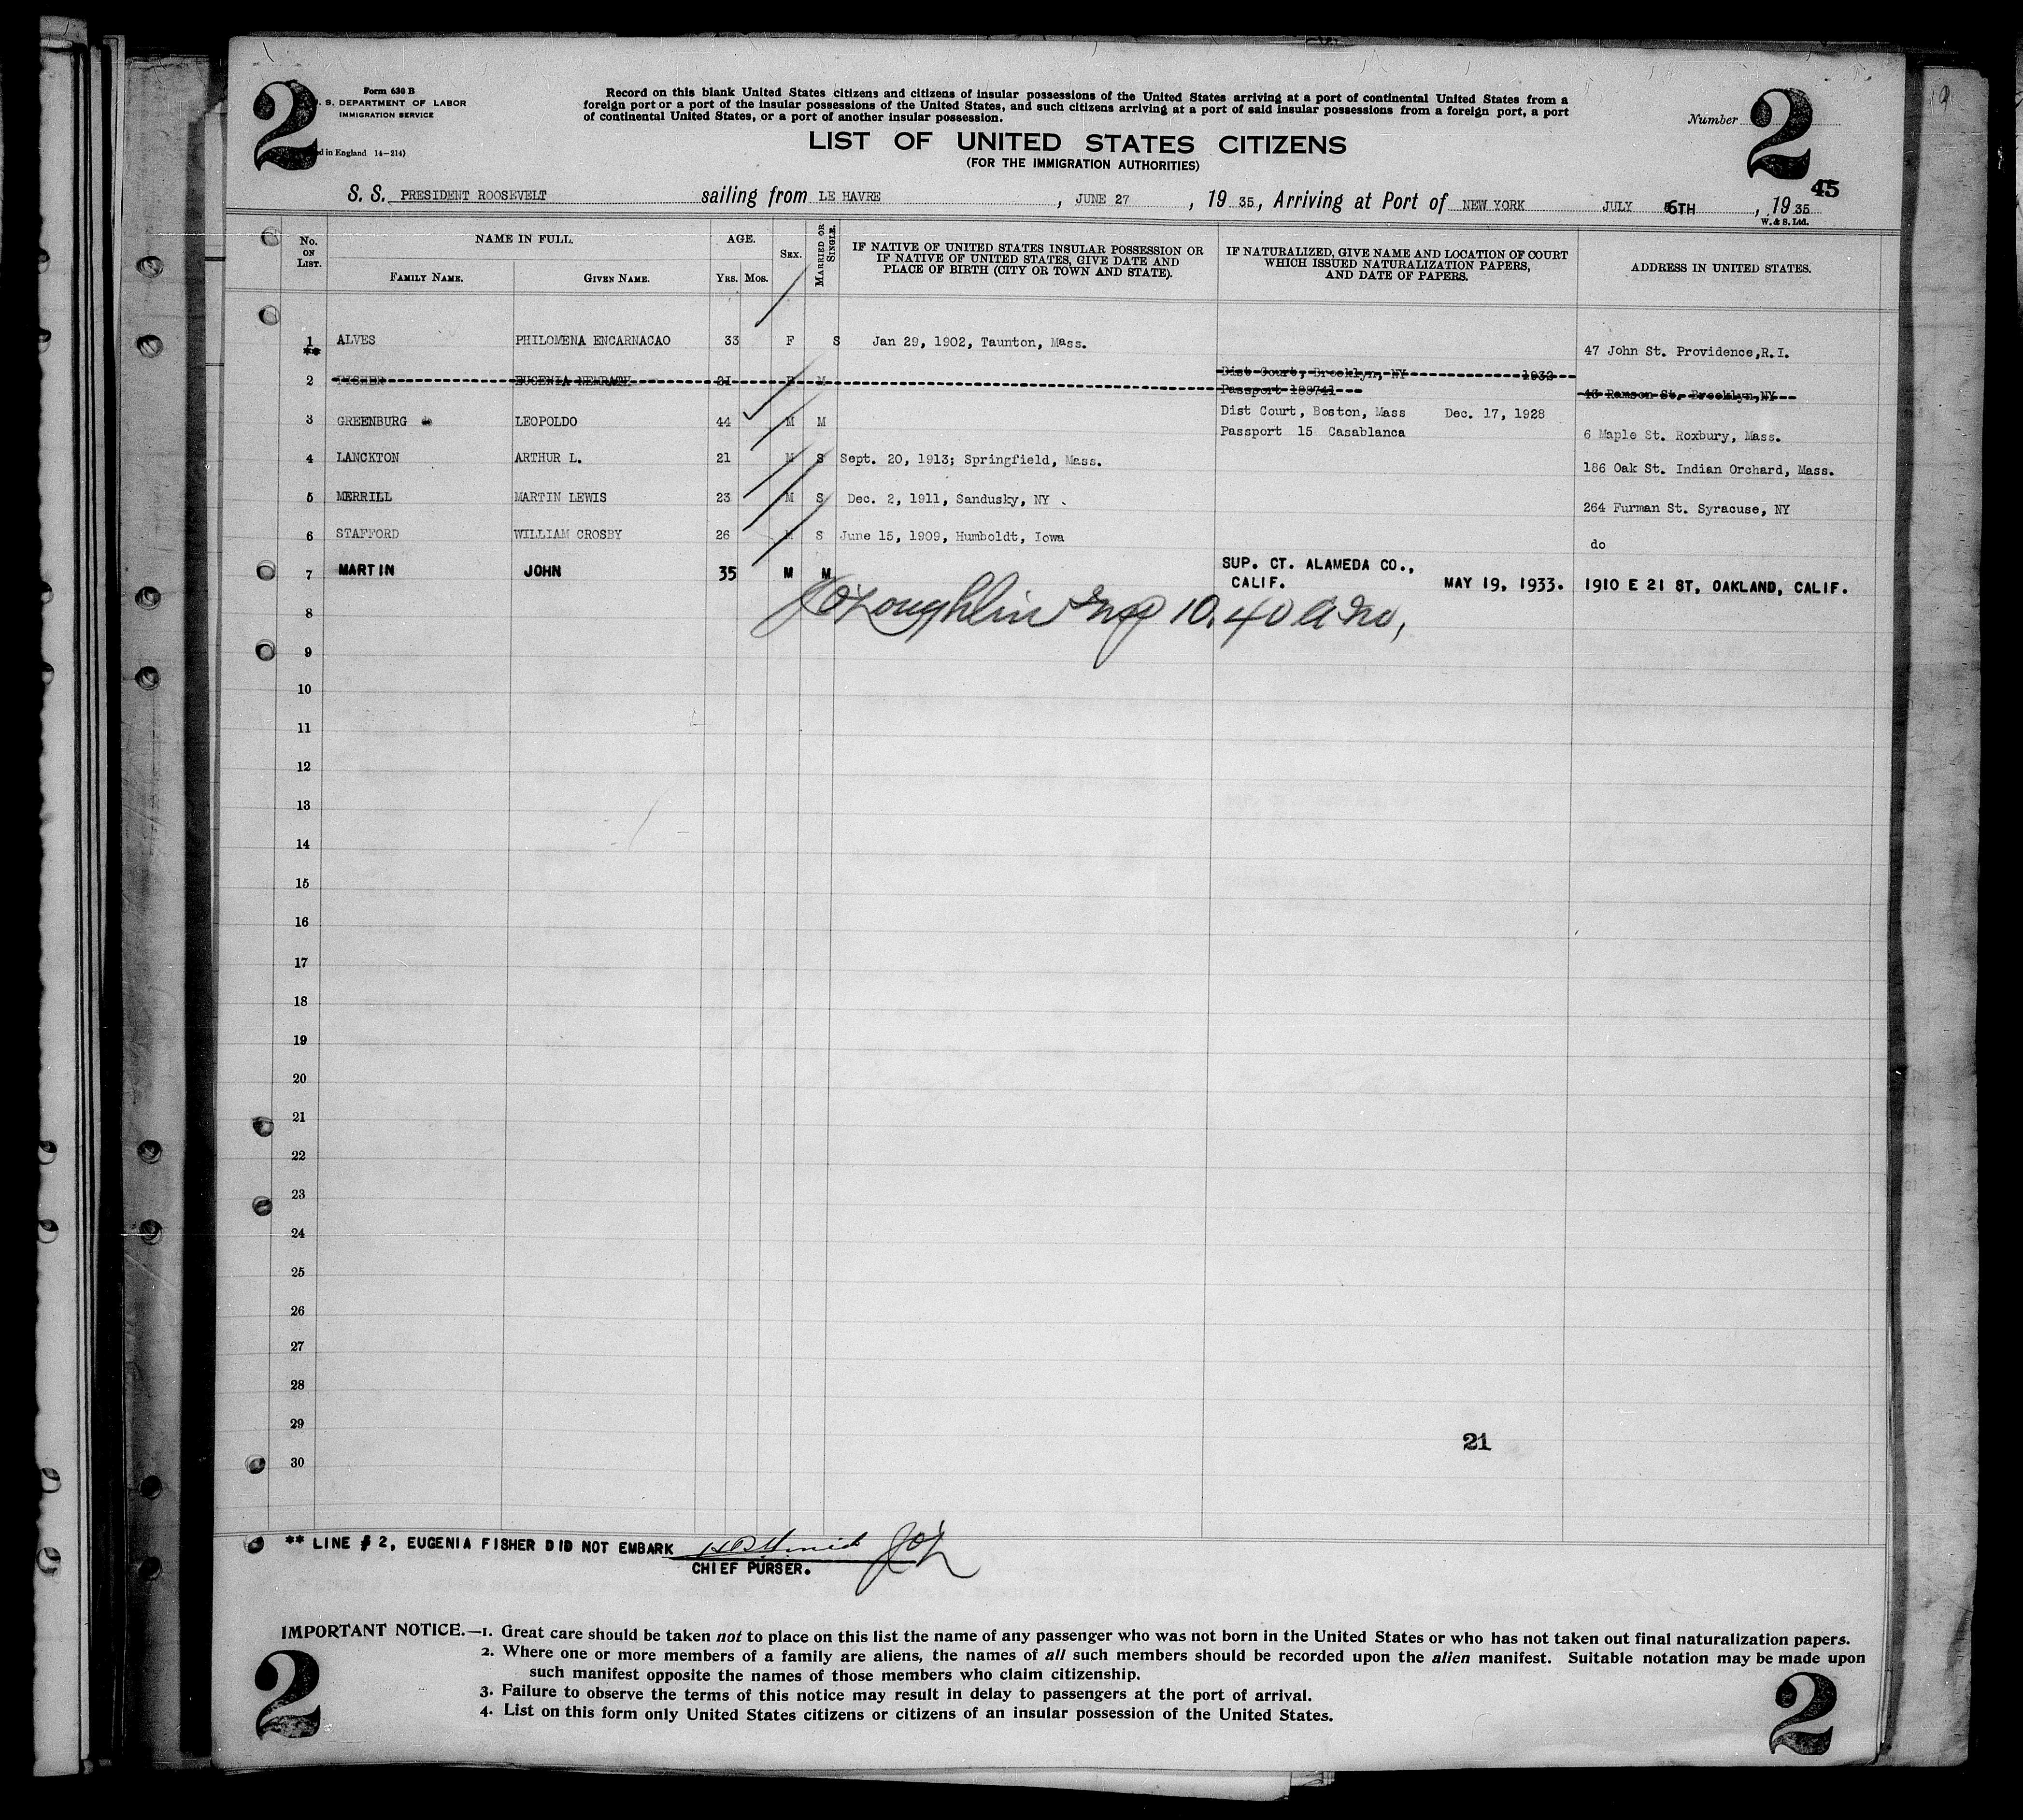 2 2
Form 630 B
U. S. DEPARTMENT OF LABOR
IMMIGRATION SERVICE
d in England 14—214)
Record on this blank United States citizens and citizens of insular possessions of the United States arriving at a port of continental United States from a
foreign port or a port of the insular possessions of the United States, and such citizens arriving at a port of said insular possessions from a foreign port, a port
of continental United States, or a port of another insular possession.
Number
LIST OF UNITED STATES CITIZENS
(FOR THE IMMIGRATION AUTHORITIES)
45
S. S. PRESIDENT ROOSEVELT sailing from LE HAVRE , JUNE 27 , 19 35, Arriving at Port of NEW YORK JULY 6TH , 19 35
W. & S. Ltd.
No. ON LIST. NAME IN FULL. AGE. SEX. MARRIED OR SINGLE. IF NATIVE OF UNITED STATES INSULAR POSSESSION OR IF NATIVE OF UNITED STATES, GIVE DATE AND PLACE OF BIRTH (CITY OR TOWN AND STATE). IF NATURALIZED, GIVE NAME AND LOCATION OF COURT WHICH ISSUED NATURALIZATION PAPERS, AND DATE OF PAPERS. ADDRESS IN UNITED STATES.
FAMILY NAME. GIVEN NAME. YRS. MOS.
1 ALVES PHILOMENA ENCARNACAO 33 F S Jan 29, 1902, Taunton, Mass. 47 John St. Providence,R.I.
**
2 FISHER EUGENIA 21 F M Dist Court, Brooklyn, NY 1932
Passport 188741 46 Ramson St. Brooklyn,NY
3 GREENBURG LEOPOLDO 44 M M Dist Court, Boston, Mass Dec. 17, 1928
Passport 15 Casablanca 6 Maple St. Roxbury, Mass.
4 LANCKTON ARTHUR L. 21 M S Sept. 20, 1913; Springfield, Mass. 186 Oak St. Indian Orchard, Mass.
5 MERRILL MARTIN LEWIS 23 M S Dec. 2, 1911, Sandusky, NY 264 Furman St. Syracuse, NY
6 STAFFORD WILLIAM CROSBY 26 M S June 15, 1909, Humboldt, Iowa do
7 MARTIN JOHN 35 M M SUP. CT. ALAMEDA CO.,
CALIF. MAY 19, 1933. 1910 E 21 ST, OAKLAND, CALIF.
8 JO'Loughlin Insp 10.40 A m,
9
10
11
12
13
14
15
16
17
18
19
20
21
22
23
24
25
26
27
28
29 21
30
** LINE # 2, EUGENIA FISHER DID NOT EMBARK JO'L
CHIEF PURSER.
IMPORTANT NOTICE.—1. Great care should be taken not to place on this list the name of any passenger who was not born in the United States or who has not taken out final naturalization papers.
2. Where one or more members of a family are aliens, the names of all such members should be recorded upon the alien manifest. Suitable notation may be made upon
such manifest opposite the names of those members who claim citizenship.
3. Failure to observe the terms of this notice may result in delay to passengers at the port of arrival.
4. List on this form only United States citizens or citizens of an insular possession of the United States.
2 2